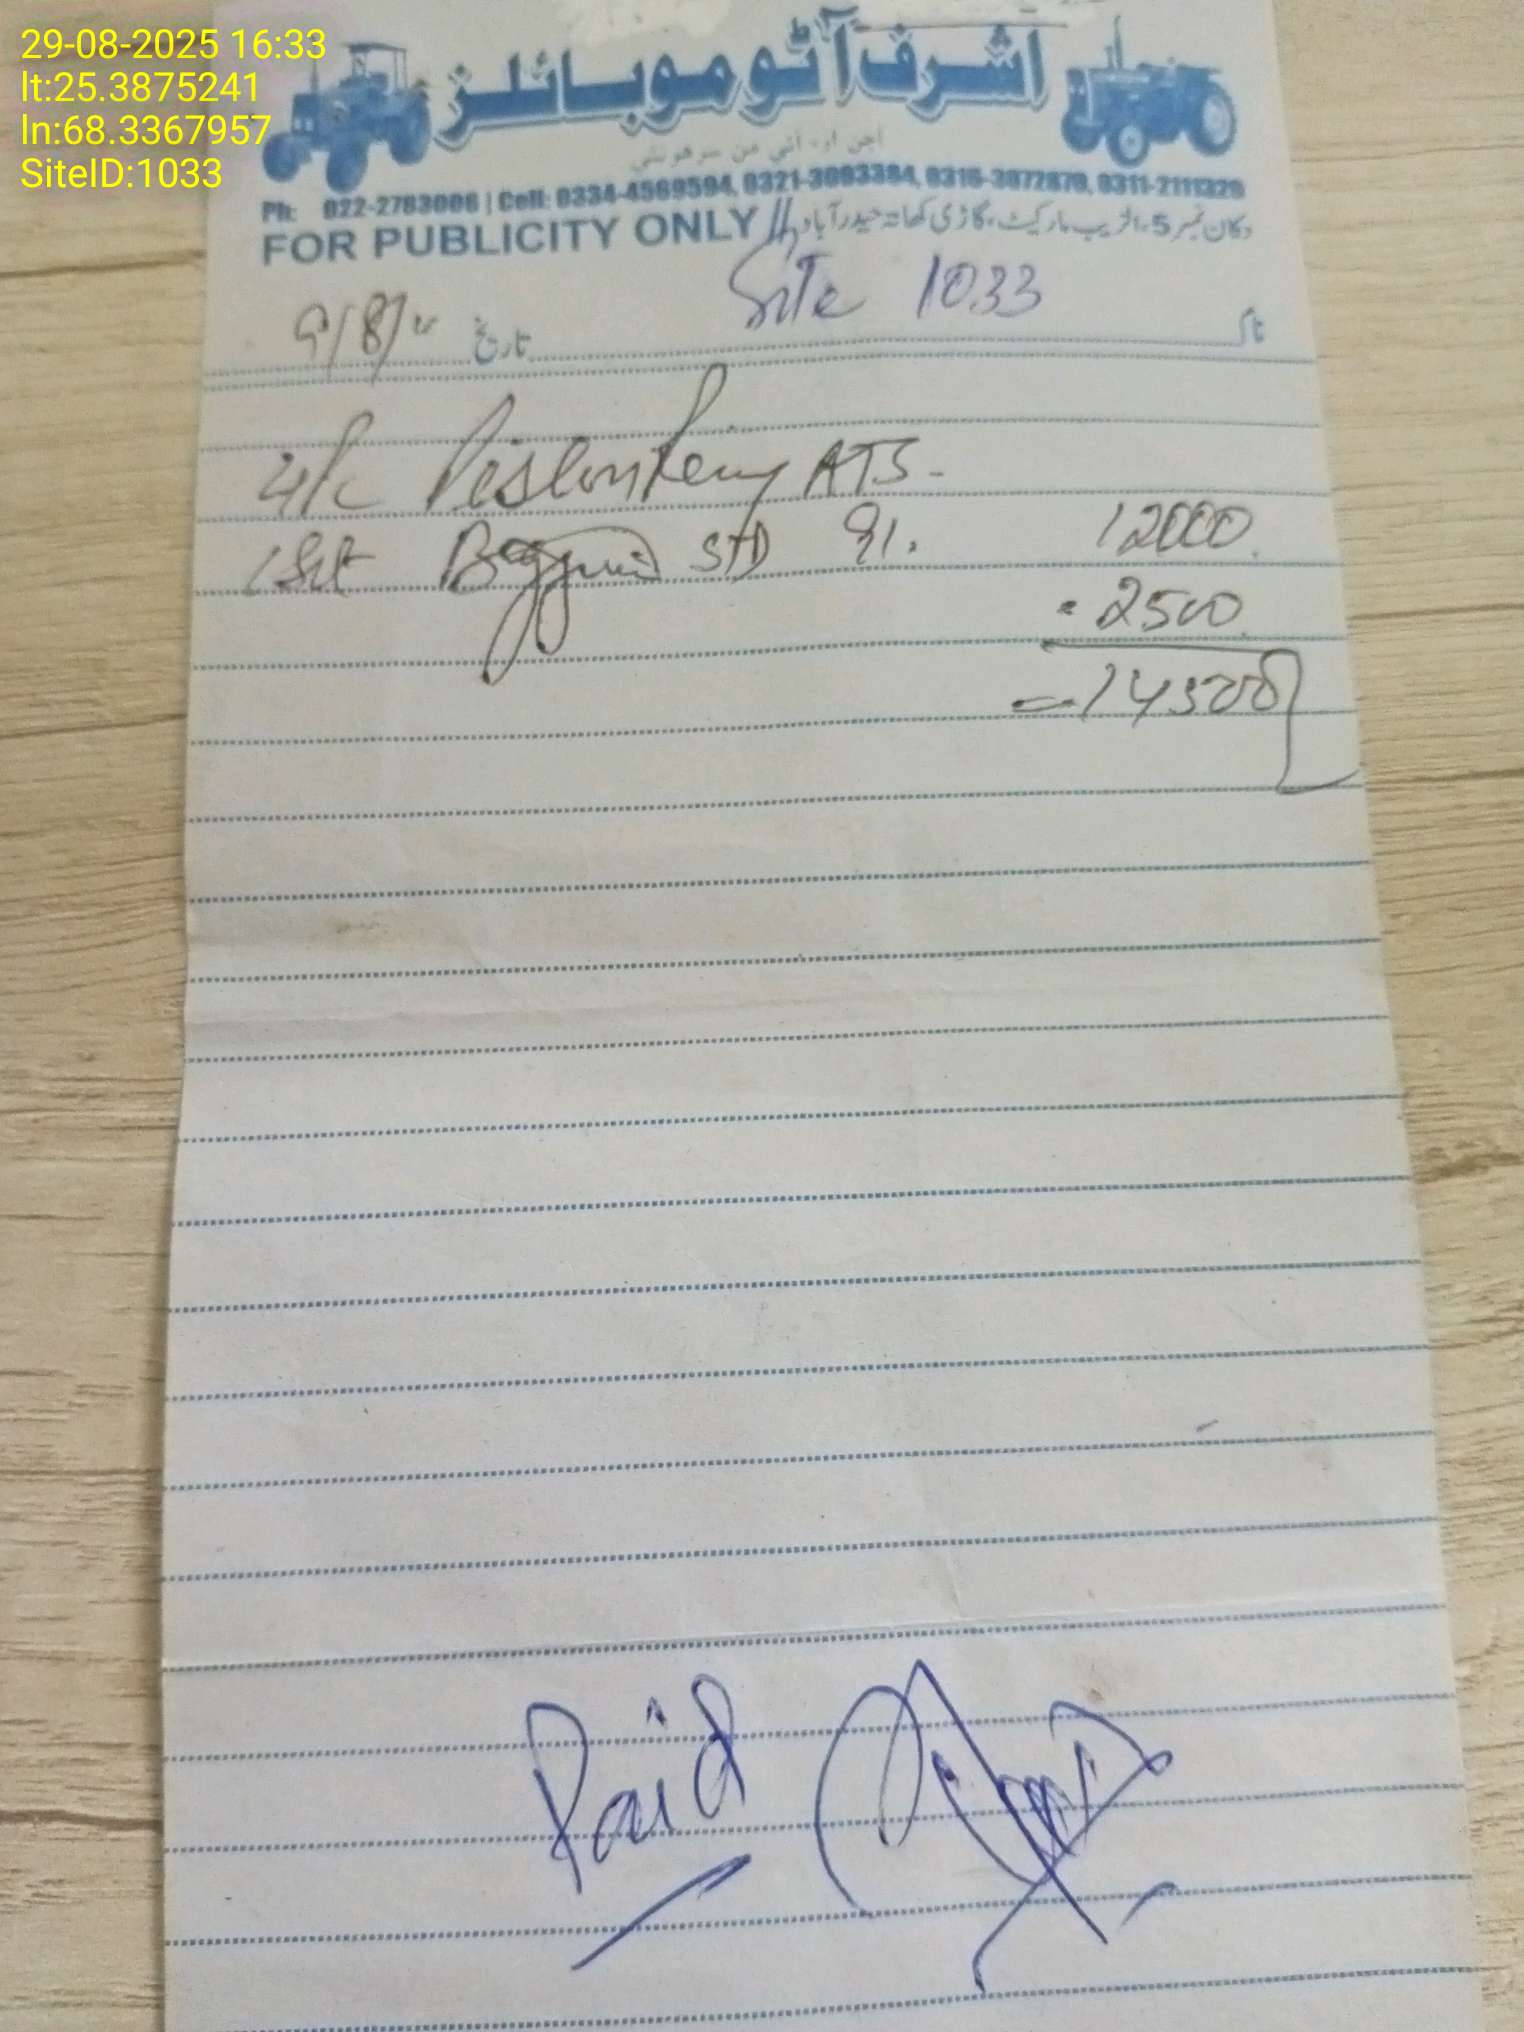 29-08-2025 16:33
lt:25.3875241
ln:68.3367957
SiteID:1033
اشرف آٹو موبائلز
Ph: 022-2783006 | Cell: 0334-4569594, 0321-3093384, 0316-3872879, 0311-2111329
FOR PUBLICITY ONLY دکان نمبر 5، الزیب مارکیٹ، گاڑی کھاتہ حیدرآباد
Site 1033
تاریخ
4/c Piston ATS -
1 Set STD 12000
2500
= 14500
Paid